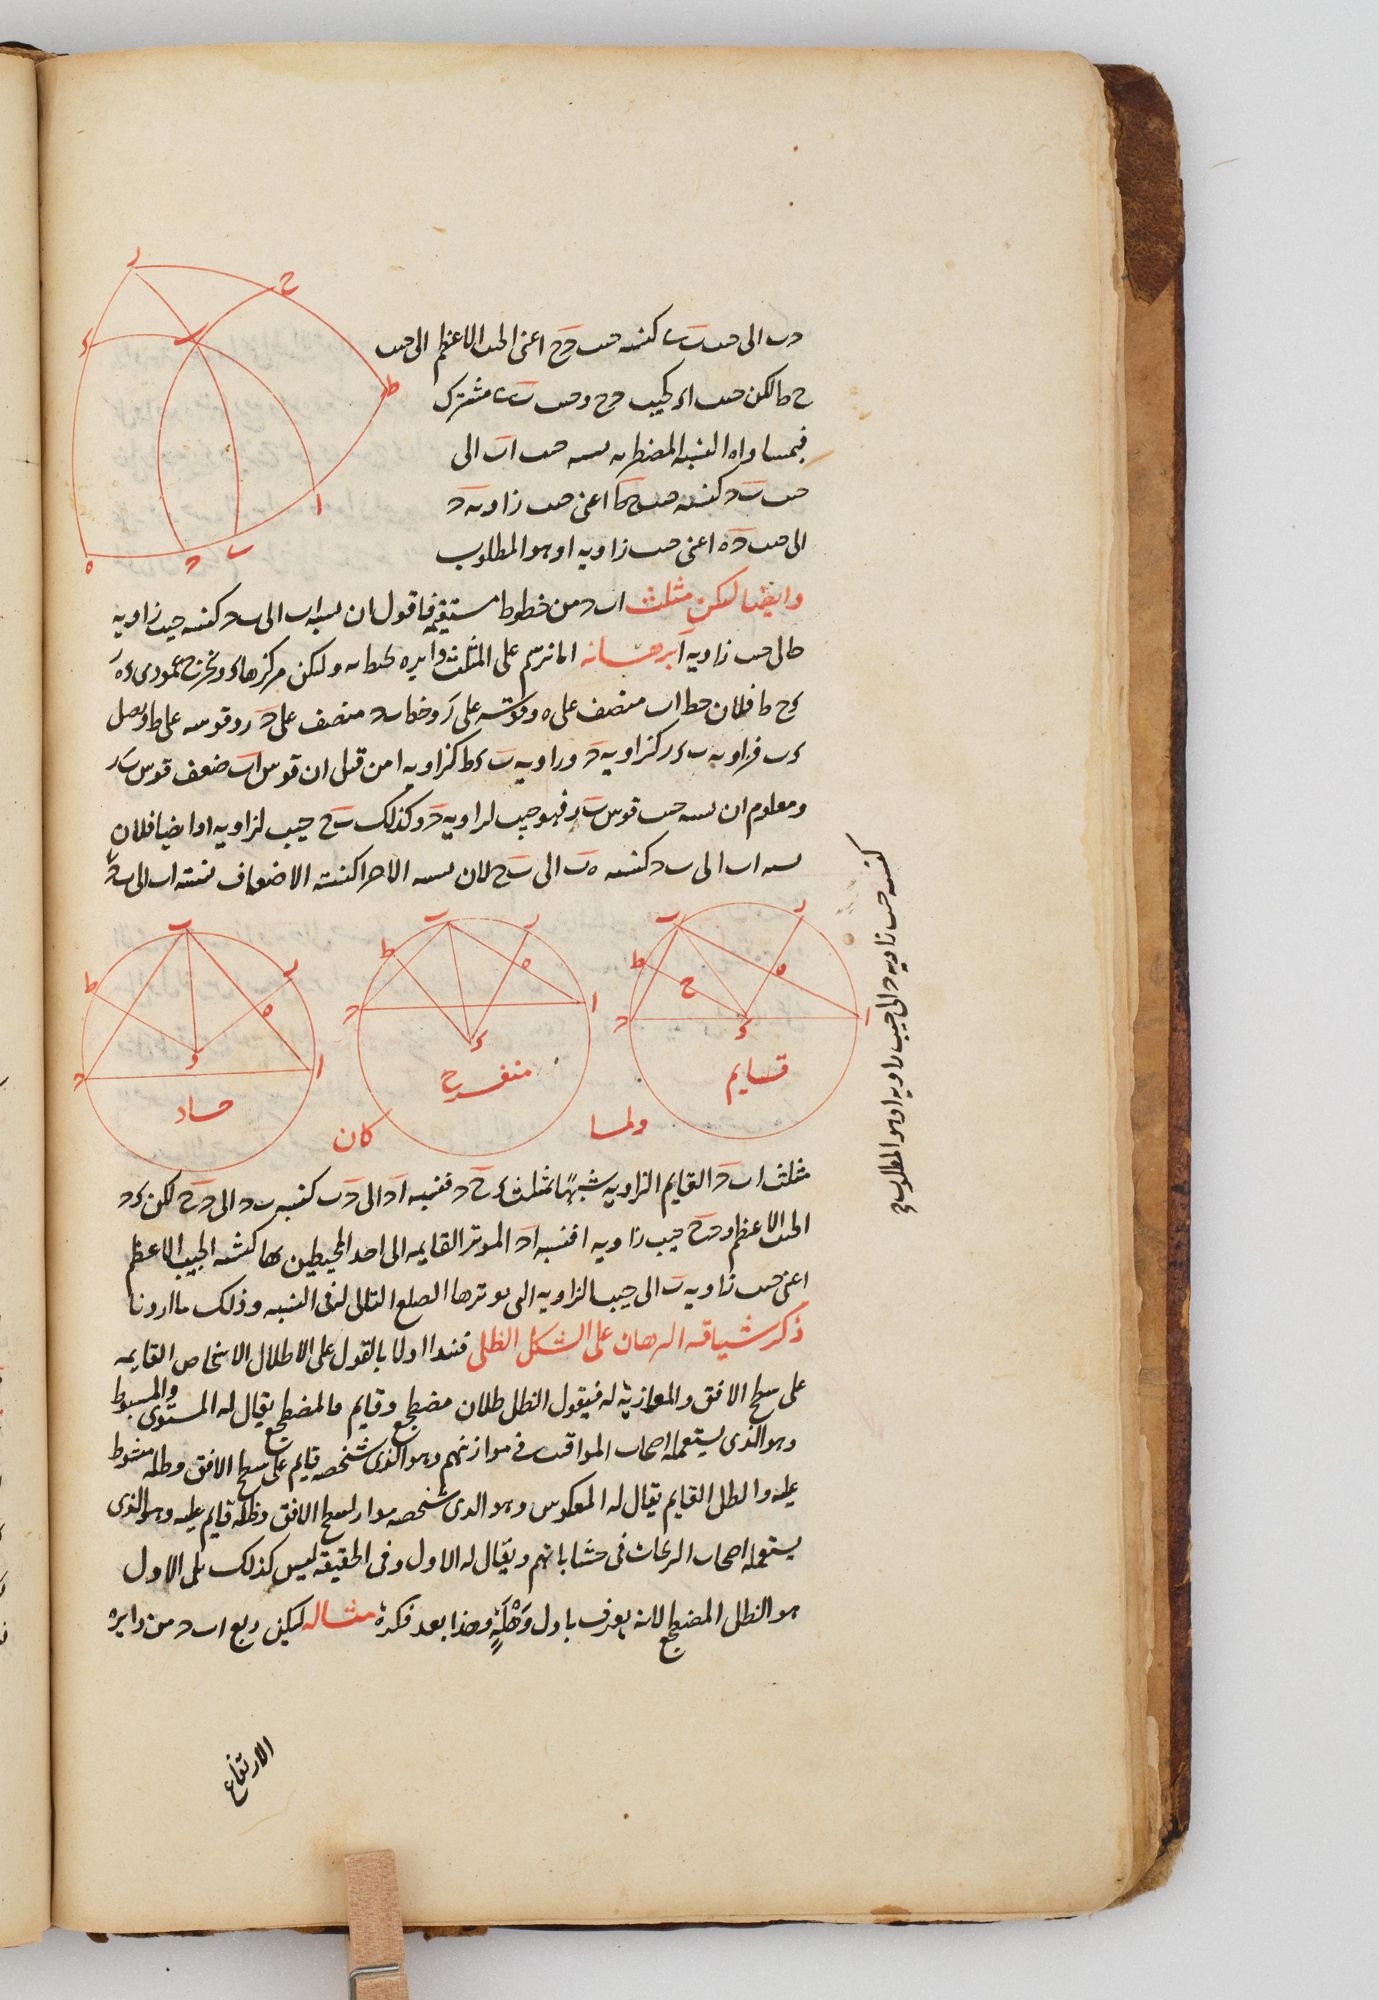 حب الى حب كنسبه حب حح اعنى الجيب الاعظم الى حب
ح ط لكن حب اء كجيب حح وحب مشترك
فبمساواه النسبه المضطربه نسبه حب اب الى
حب بح كنسبه حب اعنى حب زاويه ح
الى حب ح ه اعنى حب زاويه ا وهو المطلوب
وايضا ليكن مثلث ا ب ح من خطوط مستقيمه فاقول ان نسبه اب الى ب ح كنسبه جيب زاويه
ح الى حب زاويه ا برهانه انا نرسم على المثلث دايره وليكن مركزها ء ونخرج عمودى ء ه ر
ء ح ط فلان خط اب منصف على ه وقوسه على ر وخط ب ح منصف على ح وقوسه على ط ونصل
ء ب فزاويه ب ء ر كزاويه ح وزاويه ب ء ط كزاويه ا من قبل ان قوس اب ضعف قوس ب ر
ومعلوم ان حب قوس ب ر فهو جيب لزاويه ح وكذلك ب ح جيب لزاويه ا وايضا فلان
نسبه اب الى ب ح كنسبه ه ب الى ب ح لان نسبه الاجزا كنسبه الاضعاف فنسبه اب الى ب ح
كنسبه حب زاويه ح الى جيب زاويه ا وهو المطلوب
ر
ح
ء
ب
ط
ا
ب
ح
ه
ب
ر
ط
ه
ح
ا
ء
ح
قايم
ب
ر
ط
ه
ا
ح
ء
منفرج
ب
ر
ط
ه
ا
ء
ح
حاد
ولما
كان
مثلث ا ب ح القايم الزاويه شبيها بمثلث ء ح ح فنسبه اح الى ح ب كنسبه ء ح الى ح ح لكن ء ح
الجيب الاعظم و ح ح جيب زاويه ا فنسبه اح الموتر القايمه الى احد المحيطين بها كنسبه الجيب الاعظم
اعنى حب زاويه ب الى جيب الزاويه التى يوترها الضلع التالى لها فى النسبه وذلك ما اردنا
ذكر سياقه البرهان على الشكل الظلى فنبدا اولا بالقول على الاظلال الاشخاص القايمه
على سطح الافق والموازيه له فيقول الظل ظلان مضطجع وقايم فالمضطجع يقال له المستوى والمبسوط
وهو الذى يستعمله اصحاب المواقيت فى موازينهم وهو الذى شخصه قايم على سطح الافق وظله مبسوط
عليه والظل القايم يقال له المعكوس وهو الذى شخصه مواز لسطح الافق وظله قايم عليه وهو الذى
يستعمله اصحاب الزيجات فى حساباتهم ويقال له الاول وفى الحقيقه ليس كذلك بلى الاول
هو الظل المضطجع لانه يعرف باول وهلة وهذا بعد فكرة مثاله ليكن ربع ا ب ح من دايره
الارتفاع